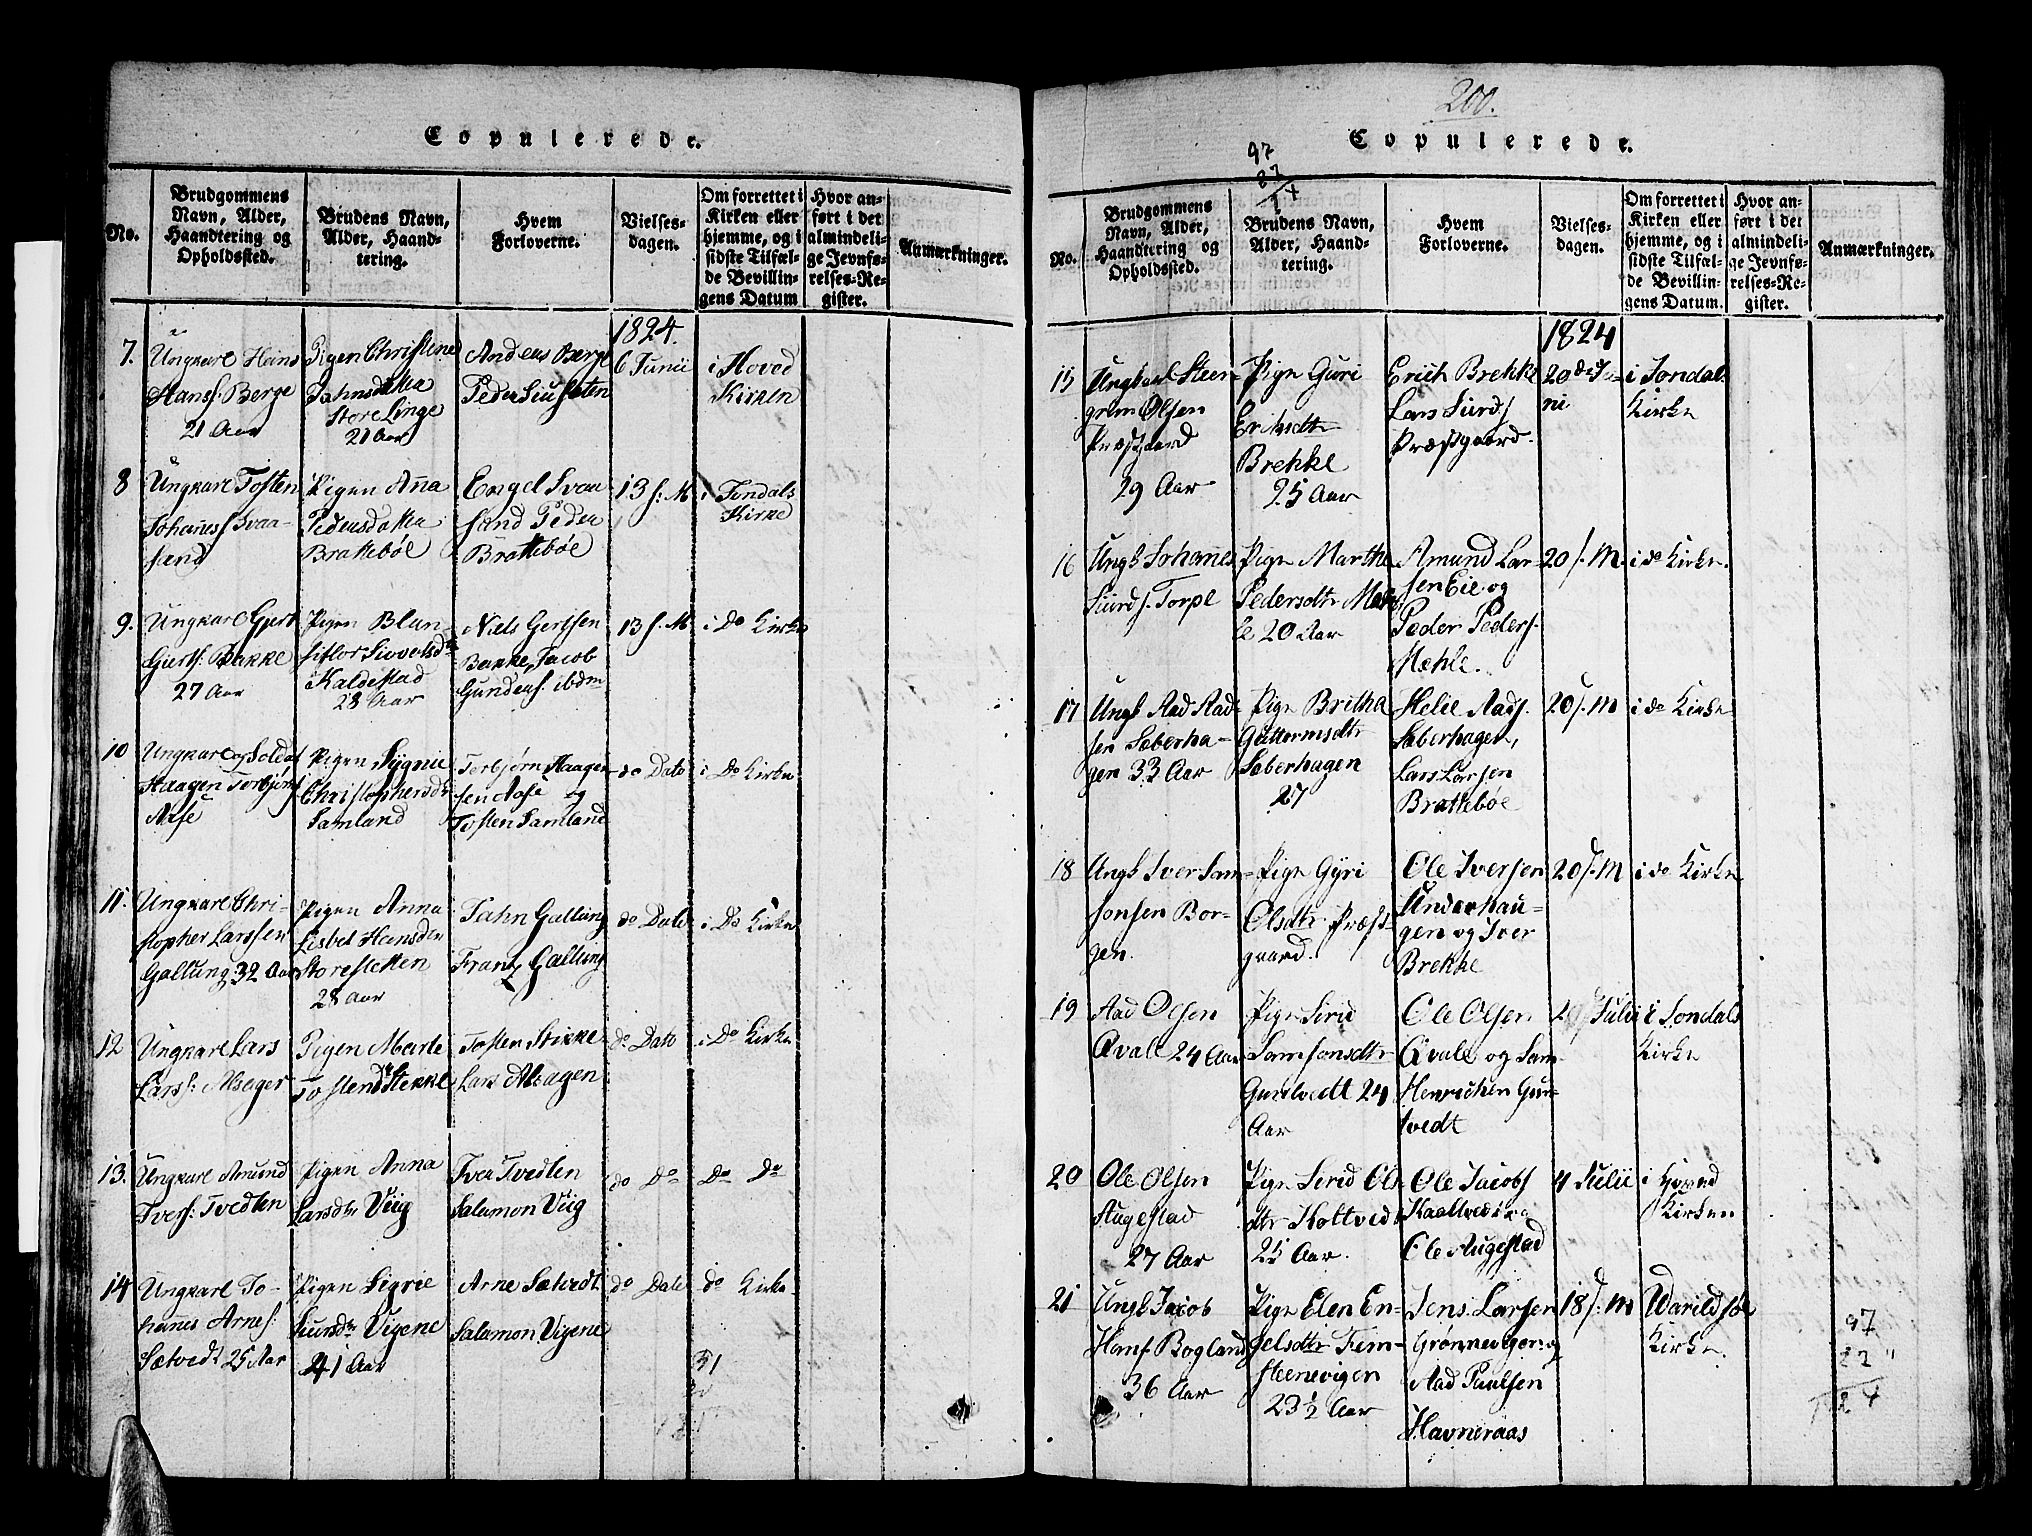 Copulerede.
No.
Brudgommens
Navn, Alder,
Haandtering og
Opholdssted.
Brudens Navn,
Alder, Haand-
tering.
Hvem
Forloverne.
Vielses-
dagen.
Om forrettet i
Kirken eller
hjemme, og i
sidste Tilfæl-
de Bevillin-
gens Datum
Hvor an-
ført i det
almindeli-
ge Jevnfø-
relses-Re-
gister.
Anmærkninger.
1824.
7.
Ungkarl Hans
Hanss. Berge
21 Aar
Pigen Christine
Jahnsdatter
Store Linge
21 Aar
Anders Berge
Peder
6 Junii
i Hoved
Kirken
8
Ungkarl Tosten
Johaness. Svaa-
sand
Pigen Anna
Pedersdatter
Brattebøe
Engel Svaa
sand Peder
Brattebøe
13 s. M
i Jondals
Kirke
9.
Ungkarl Gjert
Giertss. Bakke
27 Aar
Pigen Blan-
siflor Sivvolsdtr
Kaldestad
28 Aar
Niels Gertsen
Bakke, Jacob
Gunders. ibdm
13 s. M
i Do Kirke
10
Ungkarl og Soldat
Haagen Torbjørns
Aase
Pigen Sygnie
Christophersdtr
Samland
Torbjørn Haagen-
sen Aase og
Tosten Samland
do Dato
i Do Kirke
11.
Ungkarl Chri-
stopher Larssen
Galtung 32 Aar
Pigen Anna
Lisbet Hansdtr
Storesletten
28 Aar
Jahn Galtung
Frantz Galtung
do Dato
i Do Kirke
12
Ungkarl Lars
Larss: Alsager
Pigen Marte
Tostensdtr Stekke
Tosten Stekke
Lars Alsagen
do Dato
i Do Kirke
13.
Ungkarl Amund
Ivers: Tvedten
Pigen Anna
Larsdtr Viig
Iver Tvedten
Salamon Viig
do Do
Do Do
14
Ungkarl Jo-
hanes Arnes:
Sætvedt 25 Aar
Pigen Sigrie
Siursdtr Vigene
41 Aar
Arne Sætvedt
Salamon Vigene
do Dato
do Kirke
51
200.
Copulerede.
97
27
No.
Brudgommens
Navn, Alder,
Haandtering og
Opholdssted.
Brudens Navn,
Alder, Haand-
tering.
Hvem
Forloverne.
Vielses-
dagen.
Om forrettet i
Kirken eller
hjemme, og i
sidste Tilfæl-
de Bevillin-
gens Datum.
Hvor an-
ført i det
almindeli-
ge Jevnfø-
relses-Re-
gister.
Anmærkninger.
1824
15
Ungkarl Steen-
grim Olsen
Præstgaard
29 Aar
Pign Guri
Erichsdtr
Brekke
25 Aar
Erich Brekke
Lars Siurds
Præstgaard.
20de Ju-
ni
i Jondal
Kirke
16
Ungk Johannes
Siurds. Torpe
Pign Marthe
Pedersdtr Mæh
le 20 Aar
Amund Lar-
sen Eie og
Peder Peders.
Mæhle.
20 s. M.
i do Kirke.
17
Ungk Aad Aad-
sen Sæberha-
gen 33 Aar
Pign Britha
Guttormsdtr
Sæberhagen
27
Helie Aads.
Sæberhagen,
Lars Larsen
Brattebøe
20 s. M
i do Kirke
18
Ungk Iver Sam-
sonsen Bor-
gen.
Pign Gyri
Olsdtr Præst-
gaard.
Ole Iversen
Underhau-
gen og Iver
Brekke
20 s. M
i do Kirke
19
Aad Olsen
Qvale 24 Aar
Pign Sirid
Samsonsdtr
Guntvedt 24
Aar
Ole Olsen
Qvale og Sam
Henrichsen Gun-
tvedt
Julii
i Jondals
Kirke
20
Ole Olsen
Augestad
27 Aar
Pign Sirid Ol-
dtr Holtvedt
25 Aar.
Ole Jacobs
Kaaltvedt og
Ole Augestad
4 Julii
i Hoved
Kirken
21
Ungk Jacob
Hans Bogland
36 Aar
Pign Elen En-
gelsdtr Fem-
steenevigen
23½ Aar
Jens Larsen
Grønnevigen og
Aad Paulsen
Havneraas
18 s. M
Warildsøe
Kirke.
97
27